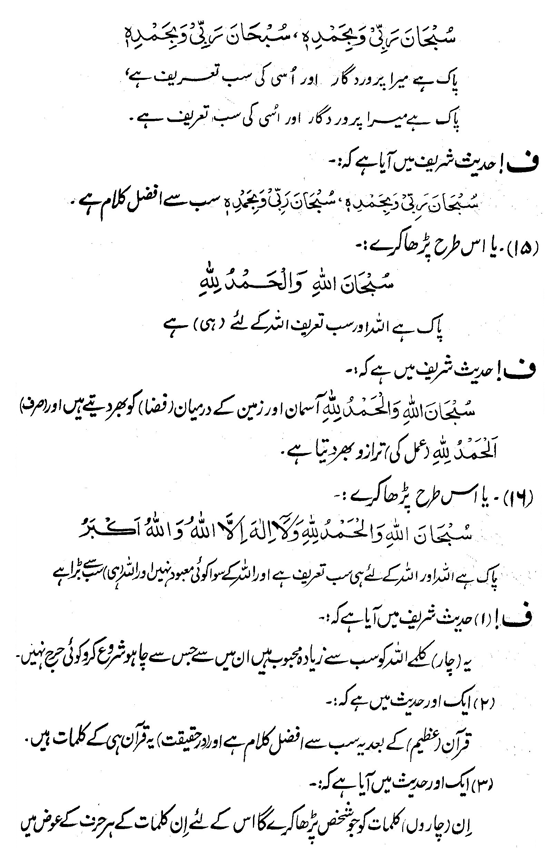 سُبْحَانَ رَبِّيْ وَبِحَمْدِهٖ، سُبْحَانَ رَبِّيْ وَبِحَمْدِهٖ
پاک ہے میرا پروردگار اور اُسی کی سب تعریف ہے،
پاک ہے میرا پروردگار اور اُسی کی سب تعریف ہے۔
ف! حدیث شریف میں آیا ہے کہ:۔
سُبْحَانَ رَبِّيْ وَبِحَمْدِهٖ، سُبْحَانَ رَبِّيْ وَبِحَمْدِهٖ سب سے افضل کلام ہے۔
(۱۵)۔ یا اس طرح پڑھا کرے:۔
سُبْحَانَ اللهِ وَالْحَمْدُ لِلّٰهِ
پاک ہے اللہ اور سب تعریف اللہ کے لئے (ہی) ہے
ف! حدیث شریف میں ہے کہ:۔
سُبْحَانَ اللهِ وَالْحَمْدُ لِلّٰهِ آسمان اور زمین کے درمیان (فضا) کو بھر دیتے ہیں اور (صرف)
اَلْحَمْدُ لِلّٰهِ (عمل کی) ترازو بھر دیتا ہے۔
(۱۶)۔ یا اس طرح پڑھا کرے:۔
سُبْحَانَ اللهِ وَالْحَمْدُ لِلّٰهِ وَلَآ اِلٰهَ اِلَّا اللهُ وَاللهُ اَكْبَرُ
پاک ہے اللہ اور اللہ کے لئے ہی سب تعریف ہے اور اللہ کے سوا کوئی معبود نہیں اور اللہ (ہی) سب سے بڑا ہے
ف! (۱) حدیث شریف میں آیا ہے کہ:۔
یہ (چار) کلمے اللہ کو سب سے زیادہ محبوب ہیں ان میں سے جس سے چاہو شروع کرو کوئی حرج نہیں۔
(۲) ایک اور حدیث میں ہے کہ:۔
قرآن (عظیم) کے بعد یہ سب سے افضل کلام ہے اور (درحقیقت) یہ قرآن ہی کے کلمات ہیں۔
(۳) ایک اور حدیث میں آیا ہے کہ:۔
اِن (چاروں) کلمات کو جو شخص پڑھا کرے گا اس کے لئے اِن کلمات کے ہر حرف کے عوض میں